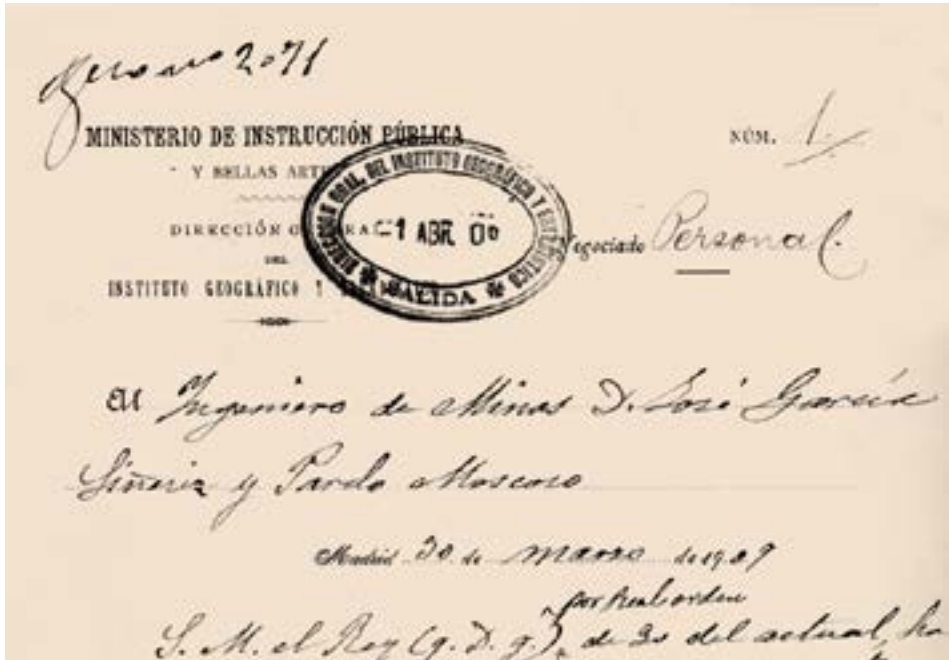 2071
MINISTERIO DE INSTRUCCIÓN PÚBLICA
Y BELLAS ART
DIRECCIÓN G RAL
DEL
INSTITUTO GEOGRÁFICO Y
DIRECCIÓN GRAL. DEL INSTITUTO GEOGRÁFICO Y ESTADÍSTICO
1 ABR 09
SALIDA
NÚM. 1
Negociado Personal.
Al Ingeniero de Minas D. José García
Siñeriz y Pardo Moscoso
Madrid 30 de marzo de 1909
por Real orden
S. M. el Rey (q. D. g.), de 30 del actual, ha